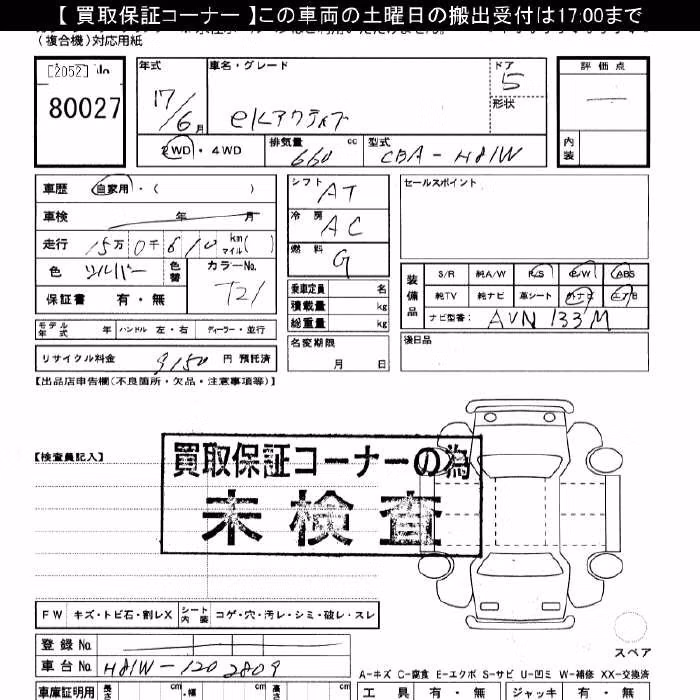 【 買取保証コーナー 】この車両の土曜日の搬出受付は17:00まで
（複合機）対応用紙
[2052] No
80027
年式
17/6月
車名・グレード
eKアクティブ
ドア
5
形状
評価点
内装
2WD・4WD
排気量
660 cc
型式
CBA-H81W
車歴 自家用・（ ）
車検 年 月
走行 15万 0千 610 km マイル( )
色 シルバー 色替 カラーNo. T21
保証書 有・無
モデル年式 年 ハンドル 左・右 ディーラー・並行
リサイクル料金 9150 円 預託済
シフト AT
冷房 AC
燃料 G
乗車定員 名
積載量 kg
総重量 kg
名変期限
月 日
セールスポイント
装備品
S/R 純A/W P/S P/W ABS
純TV 純ナビ 革シート 外ナビ エアB
ナビ型番: AVN 133M
後日品
【出品店申告欄(不良箇所・欠品・注意事項等)】
【検査員記入】
買取保証コーナーの為
未検査
FW キズ・トビ石・割レX シート内装 コゲ・穴・汚レ・シミ・破レ・スレ
登録No.
車台No. H81W-1202809
スペア
A-キズ C-腐食 E-エクボ S-サビ U-凹ミ W-補修 XX-交換済
車庫証明用 長さ cm 幅 cm cm
工具 有・無 ジャッキ 有・無